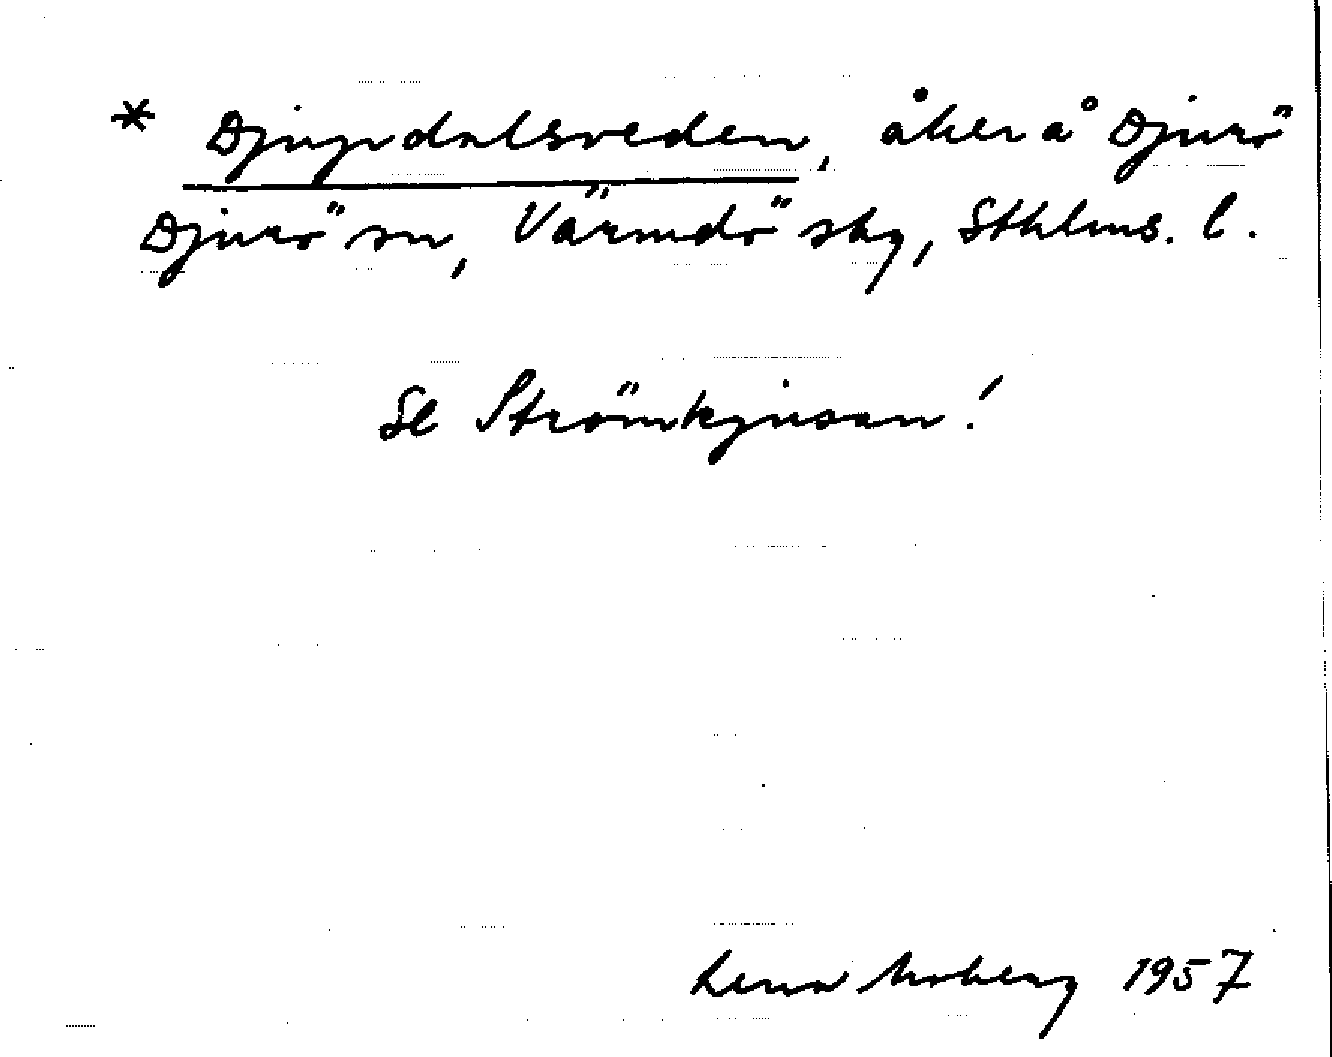 * Djupdalsveden, åker å Djurö
Djurö sn, Värmdö skg, Sthlms. l.
Se Strömkjusan!
Lena Moberg 1957